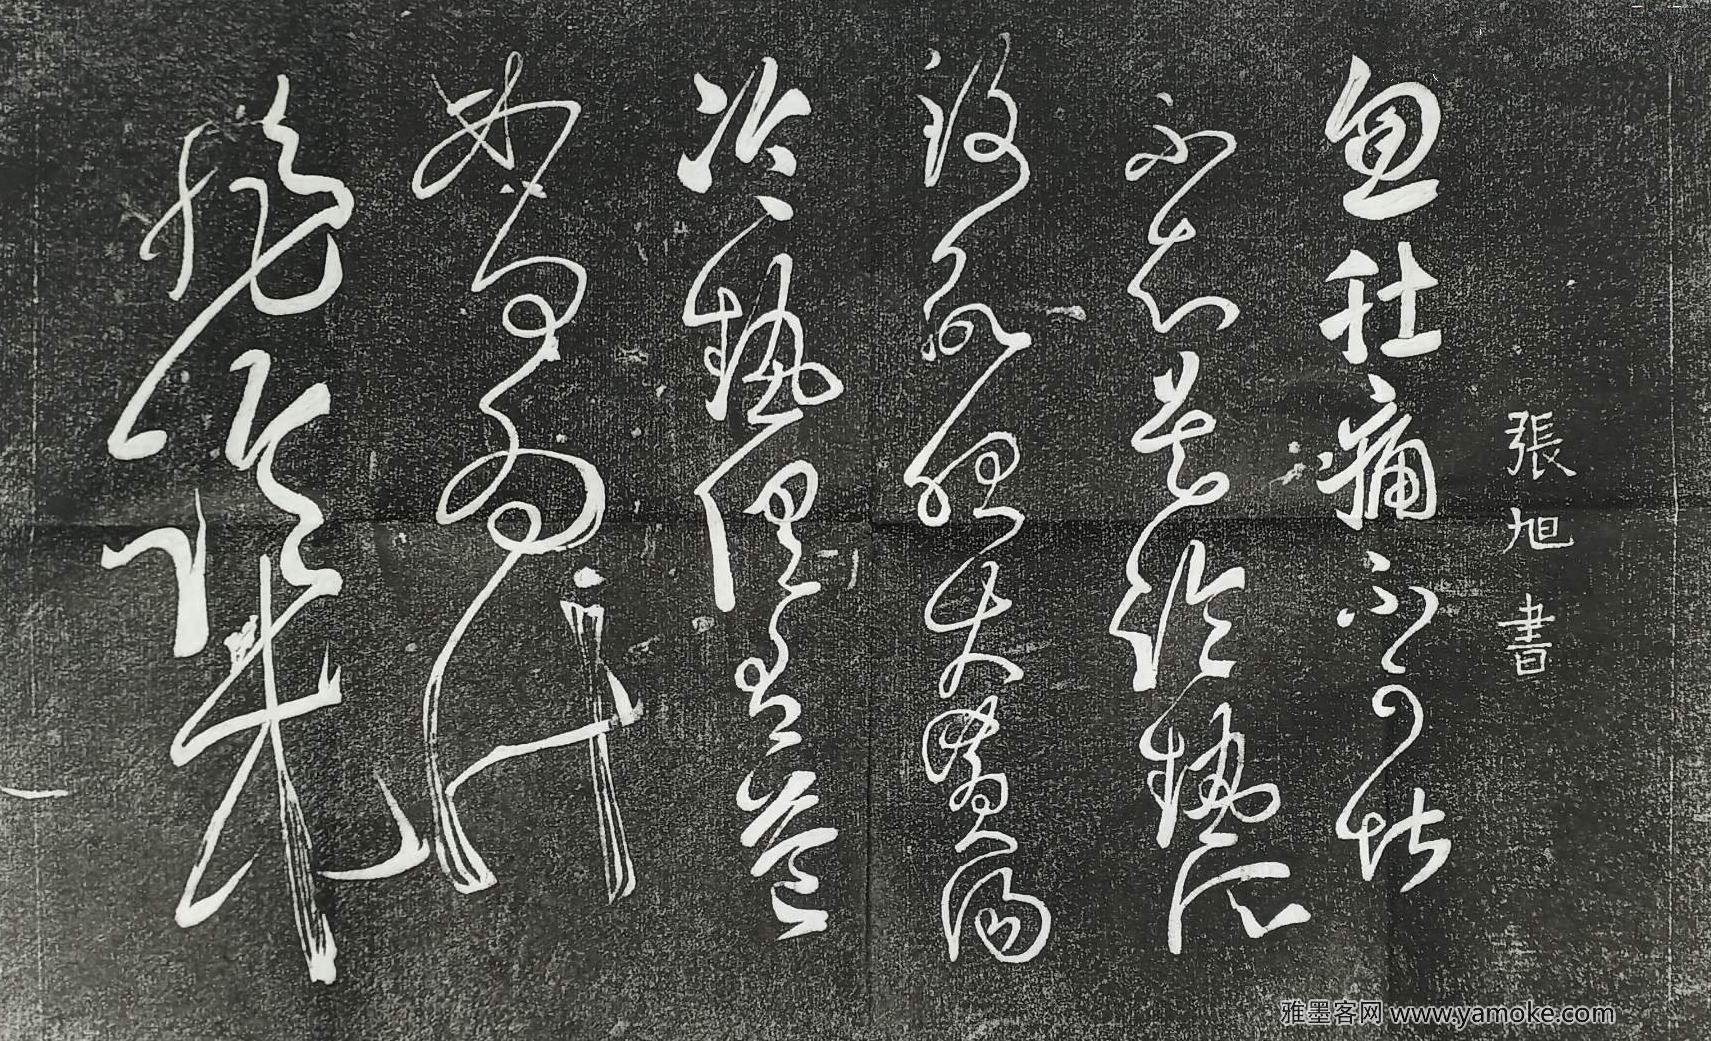 張旭書
忽肚痛不可堪
不知是冷熱所
致欲服大黃湯
冷熱俱有益
如何為計
非臨床
雅墨客网 www.yamoke.com